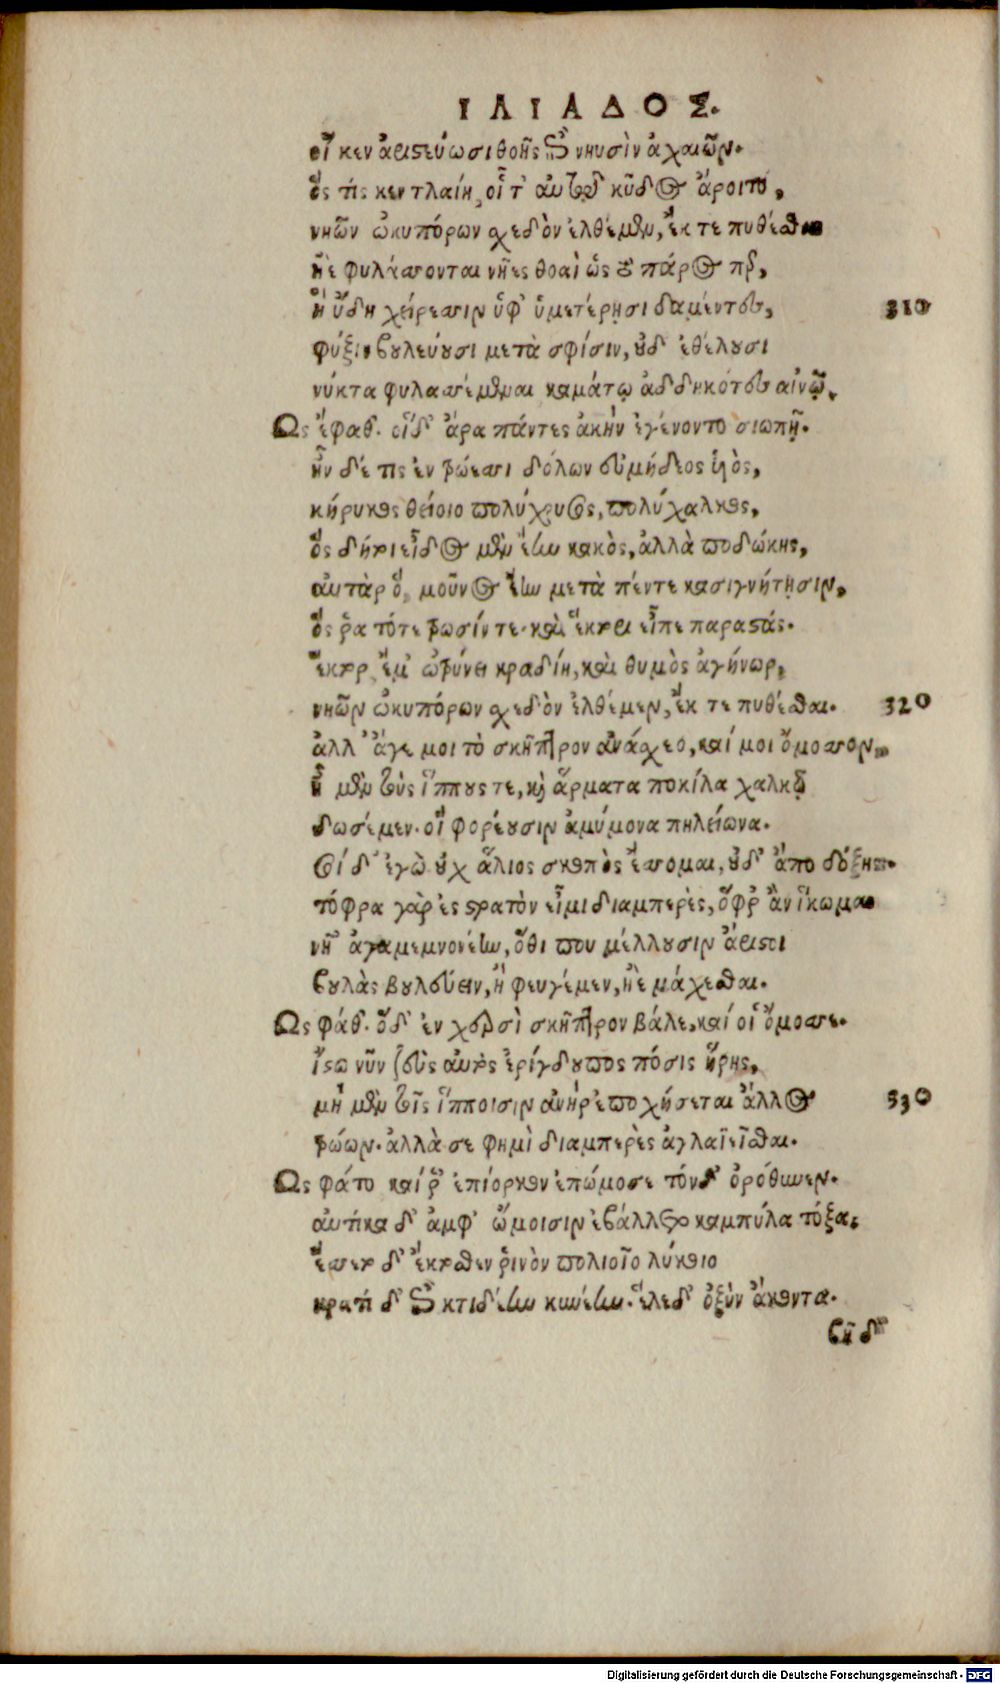 ΙΛΙΑΔΟΣ.
οἵ κεν ἀριστεύωσι θοῇς ἐπὶ νηυσὶν ἀχαιῶν.
ὅς τίς κεν τλαίη, οἷ τ' αὐτῷ κῦδος ἄροιτο,
νηῶν ὠκυπόρων σχεδὸν ἐλθέμεν, ἔκ τε πυθέσθαι
ἠὲ φυλάσσονται νῆες θοαὶ ὡς τὸ πάρος περ,
ἢ ἤδη χείρεσσιν ὑφ' ὑμετέρῃσι δαμέντες, 310
φύξιν βουλεύουσι μετὰ σφίσιν, οὐδ' ἐθέλουσι
νύκτα φυλασσέμεναι καμάτῳ ἀδδηκότες αἰνῷ.
Ὣς ἔφαθ. οἵδ' ἄρα πάντες ἀκὴν ἐγένοντο σιωπῇ.
ἦν δέ τις ἐν τρώεσσι δόλων εὐμήδεος υἱὸς,
κήρυκος θείοιο πολύχρυσος, πολύχαλκος,
ὃς δή τοι εἶδος μὲν ἔην κακὸς, ἀλλὰ ποδώκης,
αὐτὰρ ὃ, μοῦνος ἔην μετὰ πέντε κασιγνήτῃσιν,
ὅς ῥα τότε τρωσίν τε. καὶ ἕκτορι εἶπε παραστάς.
ἕκτορ, ἔμ' ὠτρύνει κραδίη, καὶ θυμὸς ἀγήνωρ,
νηῶν ὠκυπόρων σχεδὸν ἐλθέμεν, ἔκ τε πυθέσθαι. 320
ἀλλ' ἄγε μοι τὸ σκῆπτρον ἀνάσχεο, καί μοι ὄμοσσον,
ἦ μὲν τοὺς ἵππους τε, καὶ ἅρματα ποκίλα χαλκῷ
δωσέμεν. οἳ φορέουσιν ἀμύμονα πηλείωνα.
σοί δ' ἐγὼ οὐχ ἅλιος σκοπὸς ἔσσομαι, οὐδ' ἀπο δόξης.
τόφρα γὰρ ἐς στρατὸν εἶμι διαμπερὲς, ὄφρ' ἂν ἵκωμαι
νῆ' ἀγαμεμνονέην, ὅθι που μέλλουσιν ἄριστοι
βουλὰς βουλεύειν, ἢ φευγέμεν, ἠὲ μάχεσθαι.
Ὣς φάθ. ὅδ' ἐν χερσὶ σκῆπτρον βάλε, καί οἱ ὄμοσσε.
ἴστω νῦν ζεὺς αὐτὸς ἐρίγδουπος πόσις ἥρης,
μὴ μὲν τοῖς ἵπποισιν ἀνὴρ ἐποχήσεται ἄλλος 530
τρώων. ἀλλὰ σε φημὶ διαμπερὲς ἀγλαϊεῖσθαι.
Ὣς φάτο καί ῥ' ἐπίορκον ἐπώμοσε τόνδ' ὀρόθυνεν.
αὐτίκα δ' ἀμφ' ὤμοισιν ἐβάλλετο καμπύλα τόξα,
ἕσσατο δ' ἔκτοσθεν ῥινὸν πολιοῖο λύκοιο
κρατὶ δ' ἐπὶ κτιδέην κυνέην. ἕλε δ' ὀξὺν ἄκοντα.
βῆ δ'